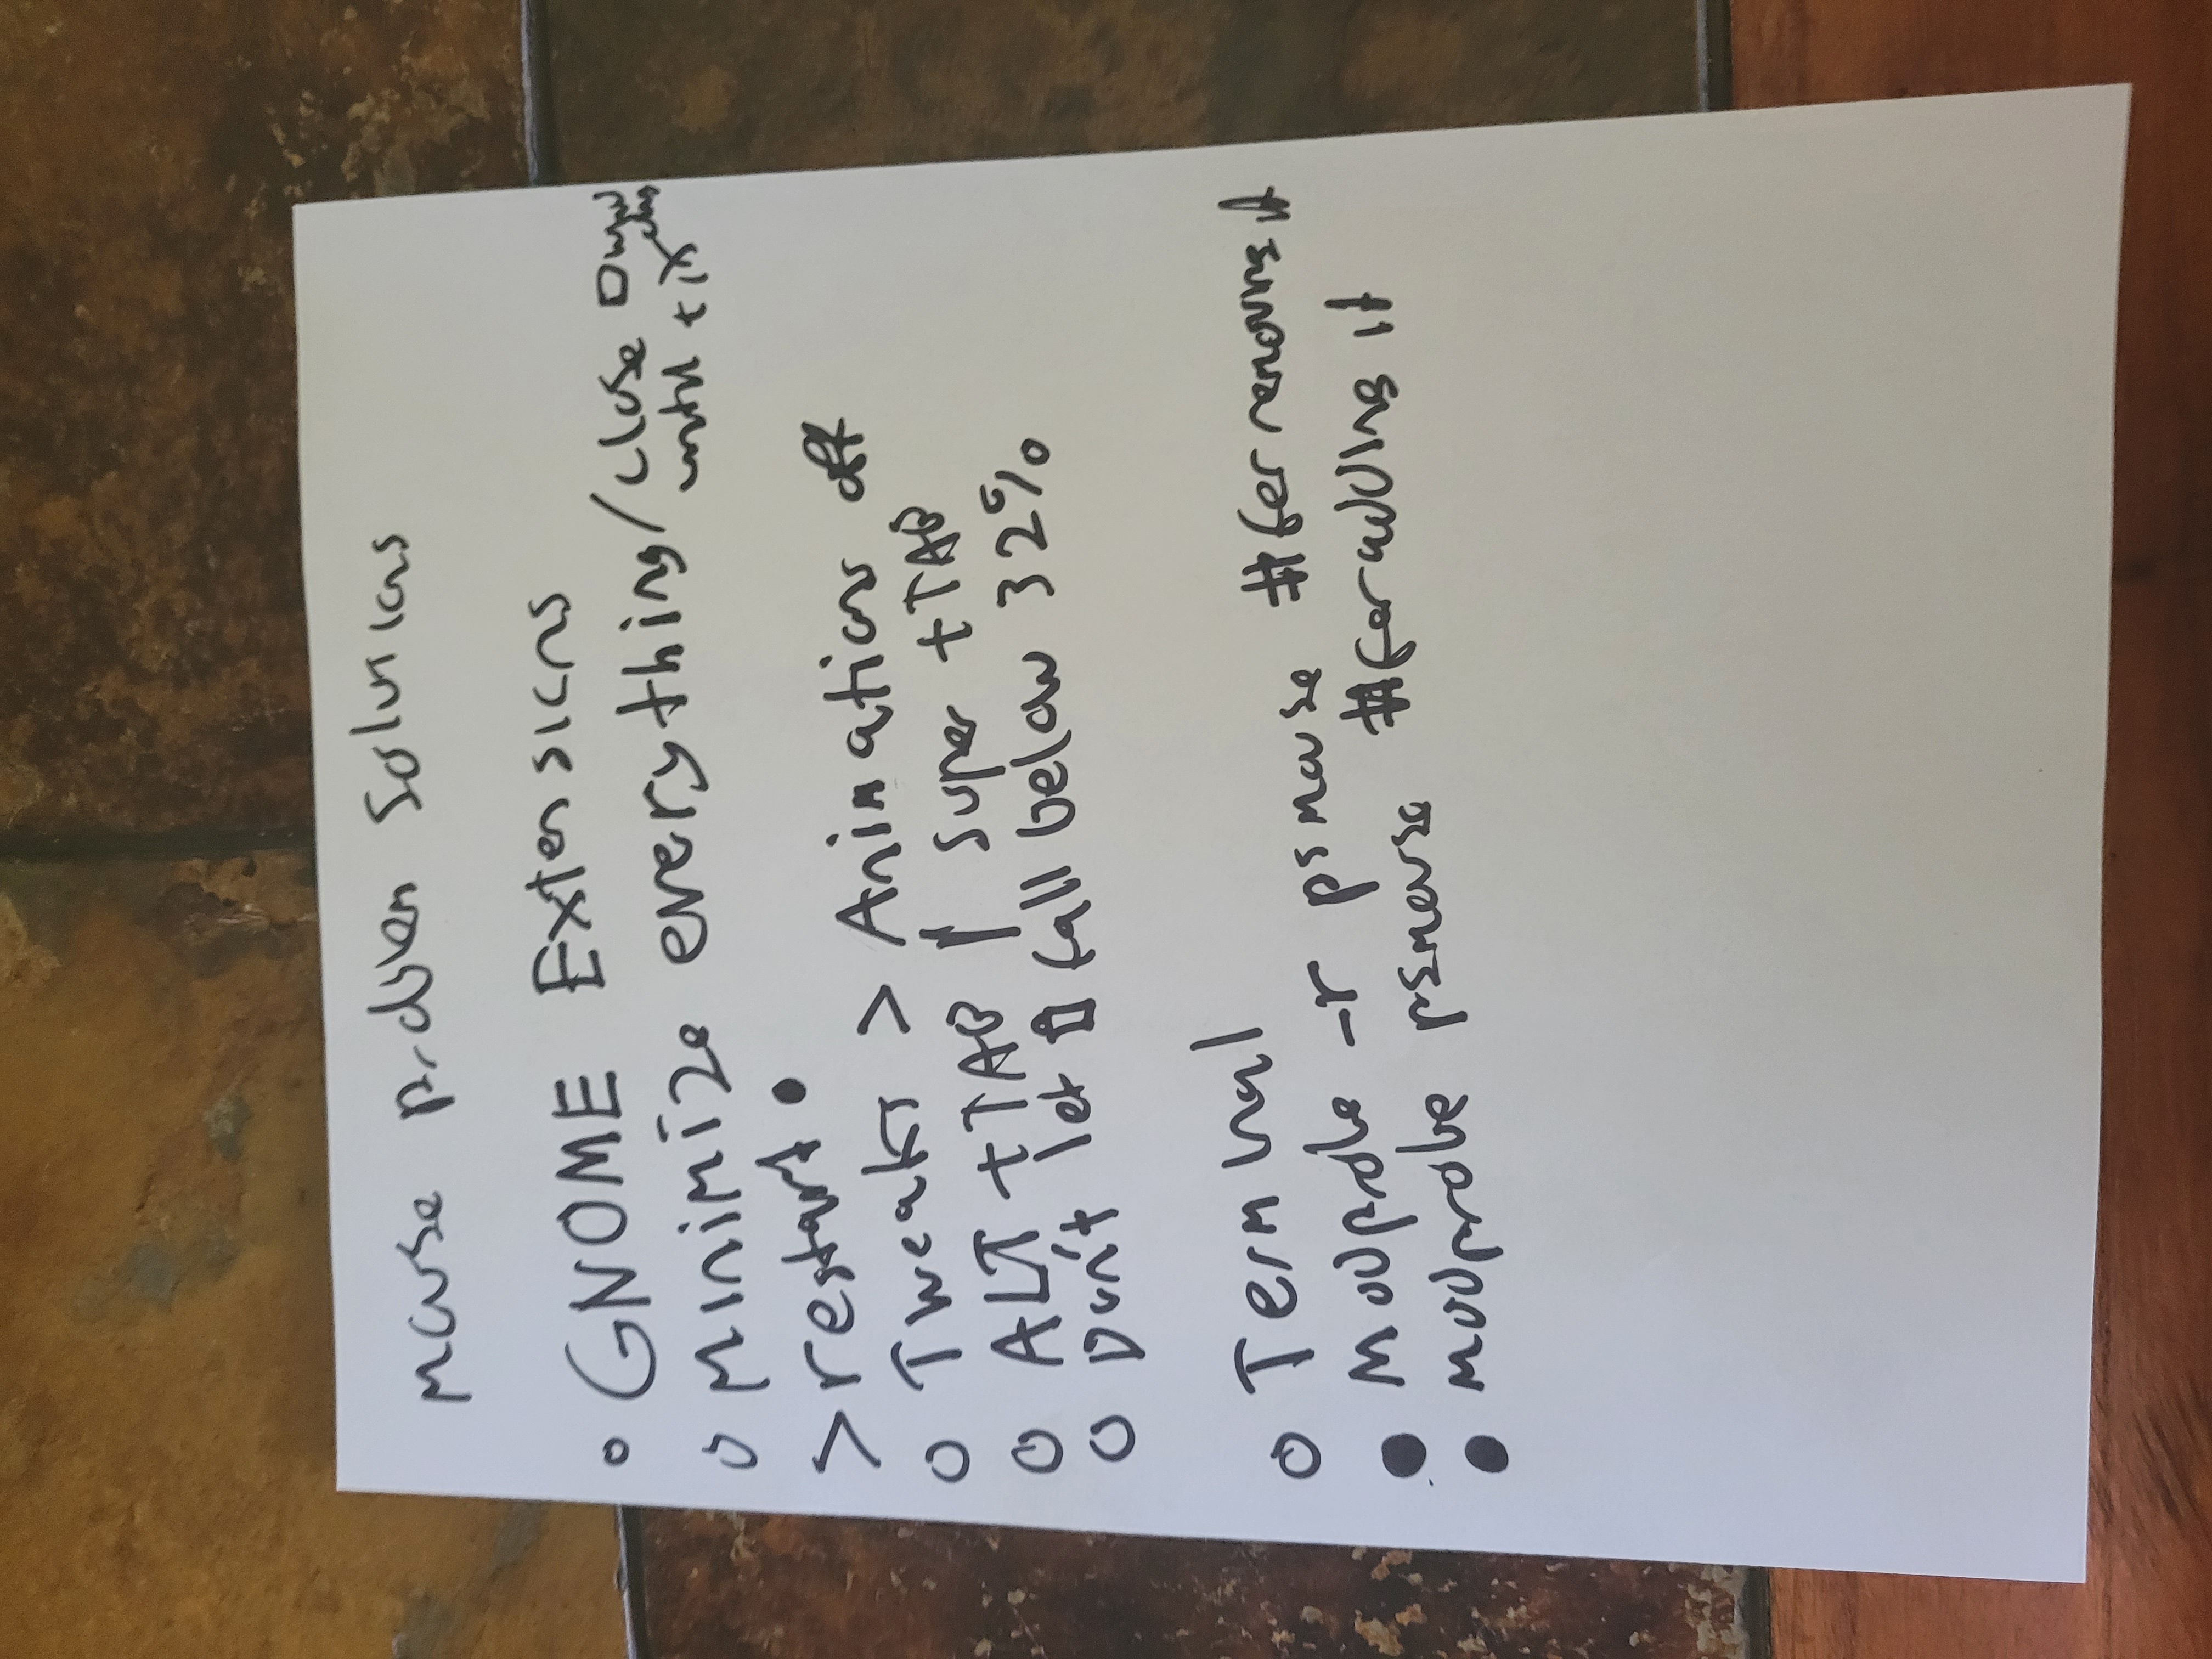 Mouse problem solutions
GNOME Extensions
Minimize everything/close
until fix
>restart
Tweaks > Animations off
ALT +TAB / super +TAB
Don't let fall below 32%
Terminal
Modprobe -r psmouse #for removing it
modprobe psmouse #for adding it